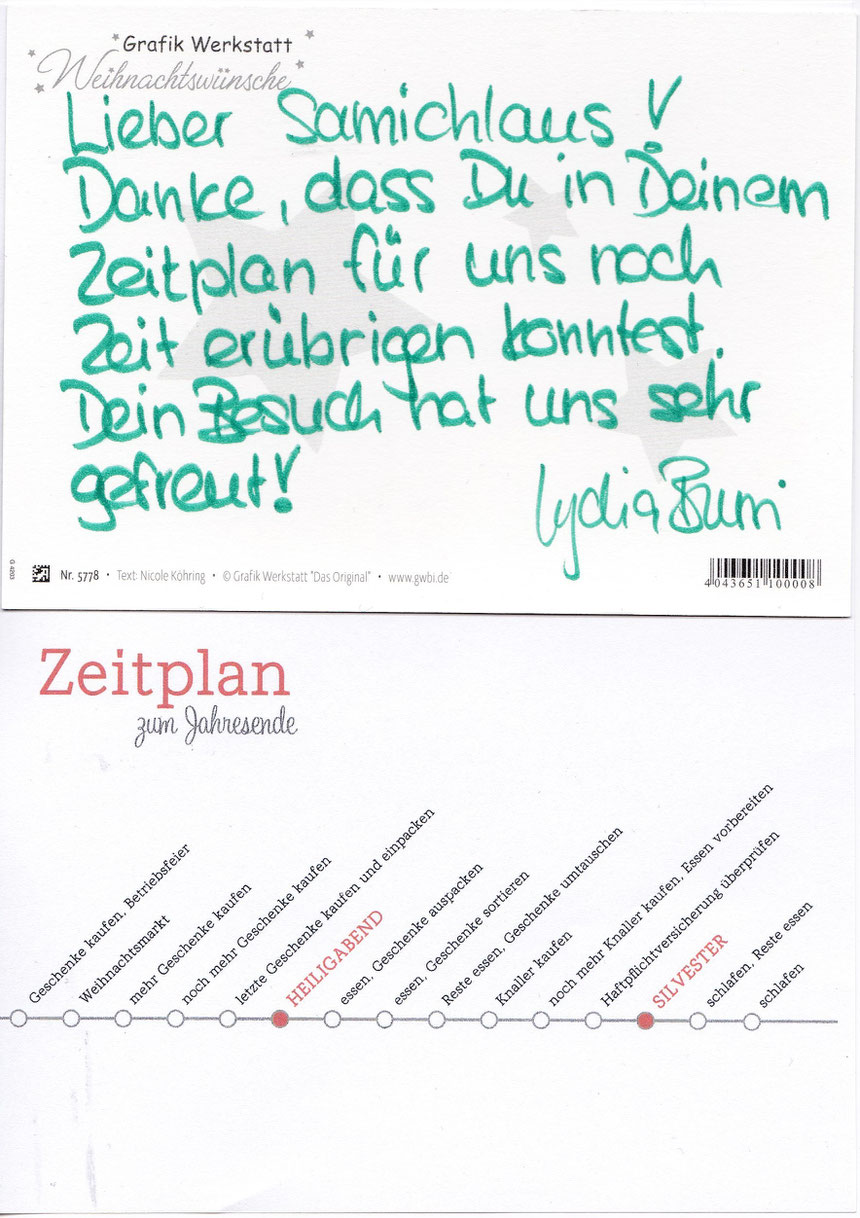 Grafik Werkstatt
Weihnachtswünsche
Lieber Samichlaus!
Danke, dass Du in Deinem
Zeitplan für uns noch
Zeit erübrigen konntest.
Dein Besuch hat uns sehr
gefreut!
Lydia Burri
G 4203
Nr. 5778 • Text: Nicole Köhring • © Grafik Werkstatt "Das Original" • www.gwbi.de
4 043651 100008
Zeitplan
zum Jahresende
Geschenke kaufen, Betriebsfeier
Weihnachtsmarkt
mehr Geschenke kaufen
noch mehr Geschenke kaufen
letzte Geschenke kaufen und einpacken
HEILIGABEND
essen, Geschenke auspacken
essen, Geschenke sortieren
Reste essen, Geschenke umtauschen
Knaller kaufen
noch mehr Knaller kaufen, Essen vorbereiten
Haftpflichtversicherung überprüfen
SILVESTER
schlafen, Reste essen
schlafen